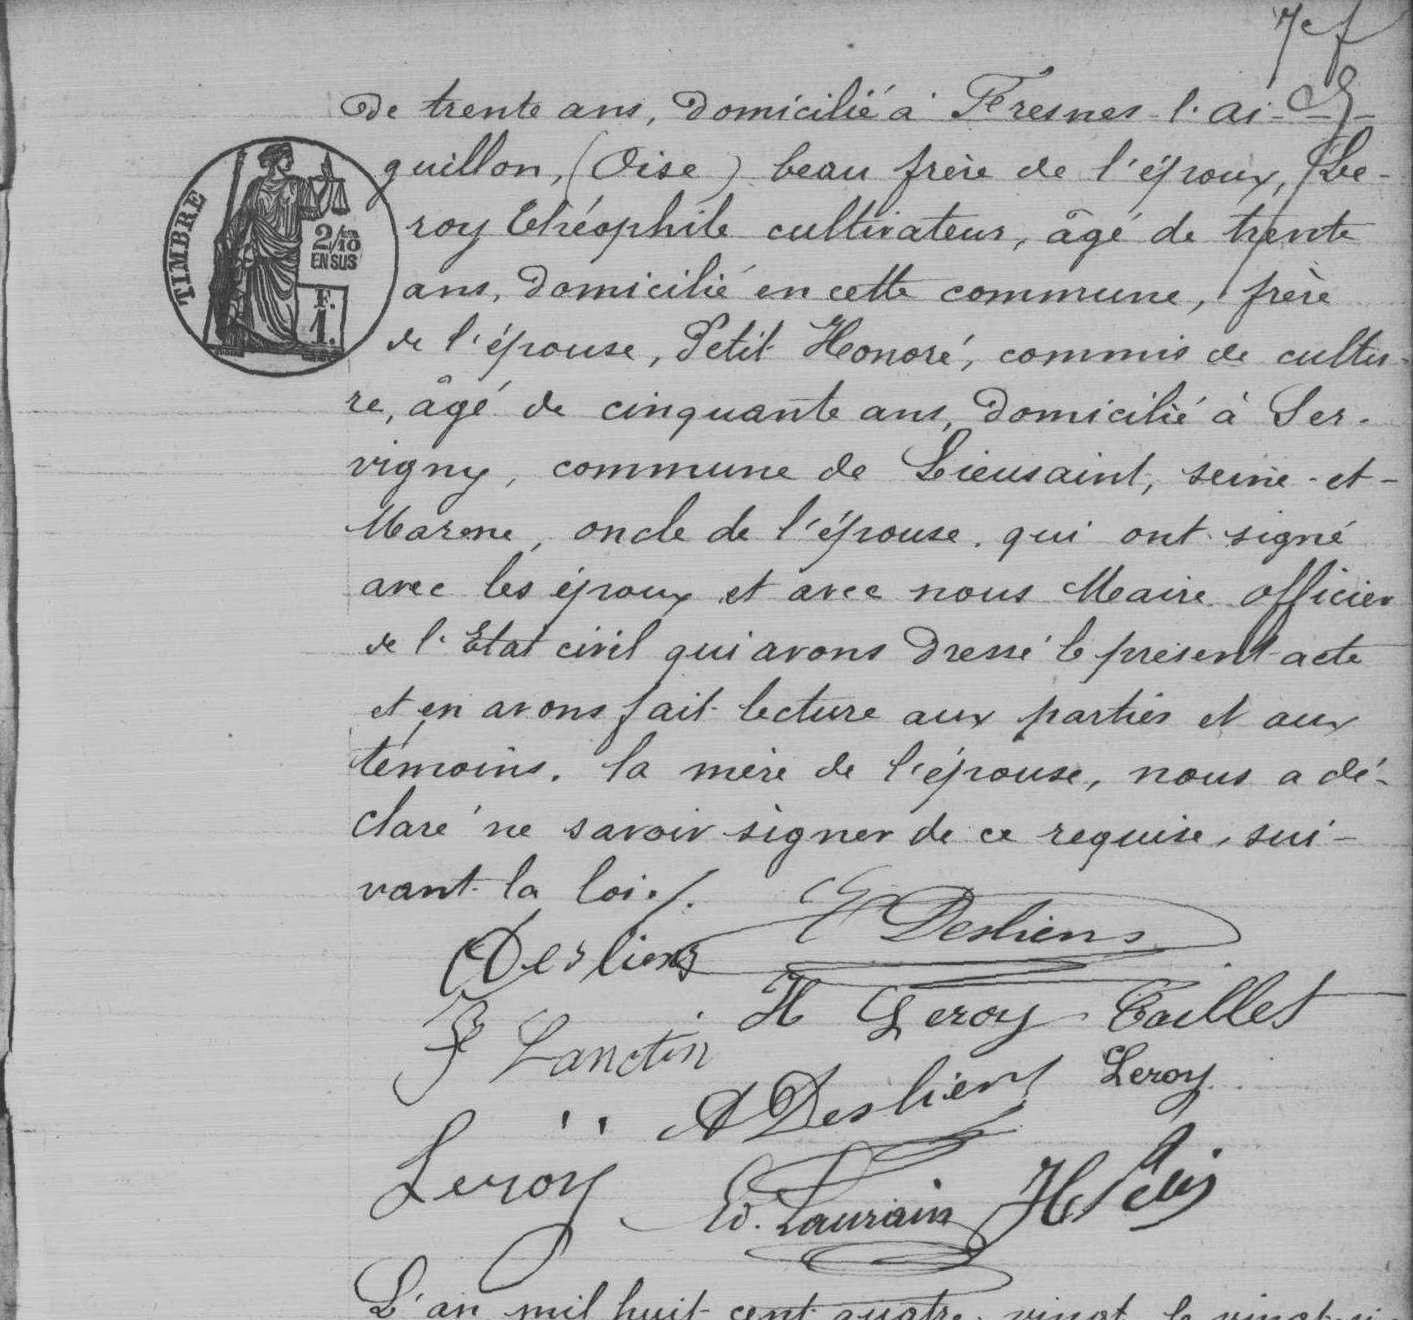 7e f
de trente ans, domicilié à Fresnes-l'Ai-
guillon, (Oise) beau frère de l'époux, Le-
roy Théophile cultivateur, âgé de trente
ans, domicilié en cette commune, frère
de l'épouse, Petit Honoré, commis de cultu-
re, âgé de cinquante ans, domicilié à Ser-
vigny, commune de Lieusaint, seine-et-
Marne, oncle de l'épouse. qui ont signé
avec les époux et avec nous Maire officier
de l'Etat civil qui avons dressé le présent acte
et en avons fait lecture aux parties et aux
témoins. la mère de l'épouse, nous a dé-
claré ne savoir signer de ce requise, sui-
vant la loi./.
TIMBRE
2/10
EN SUS
F.
1.
Desliens
Desliens
H Leroy
Taillet
Lanctin
A Desliens
Leroy
Leroy
Ed. Laurain
H Petit
L'an mil huit cent quatre-vingt, le